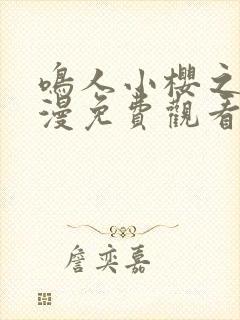 鳴人小櫻之
漫免費觀看
詹奕嘉